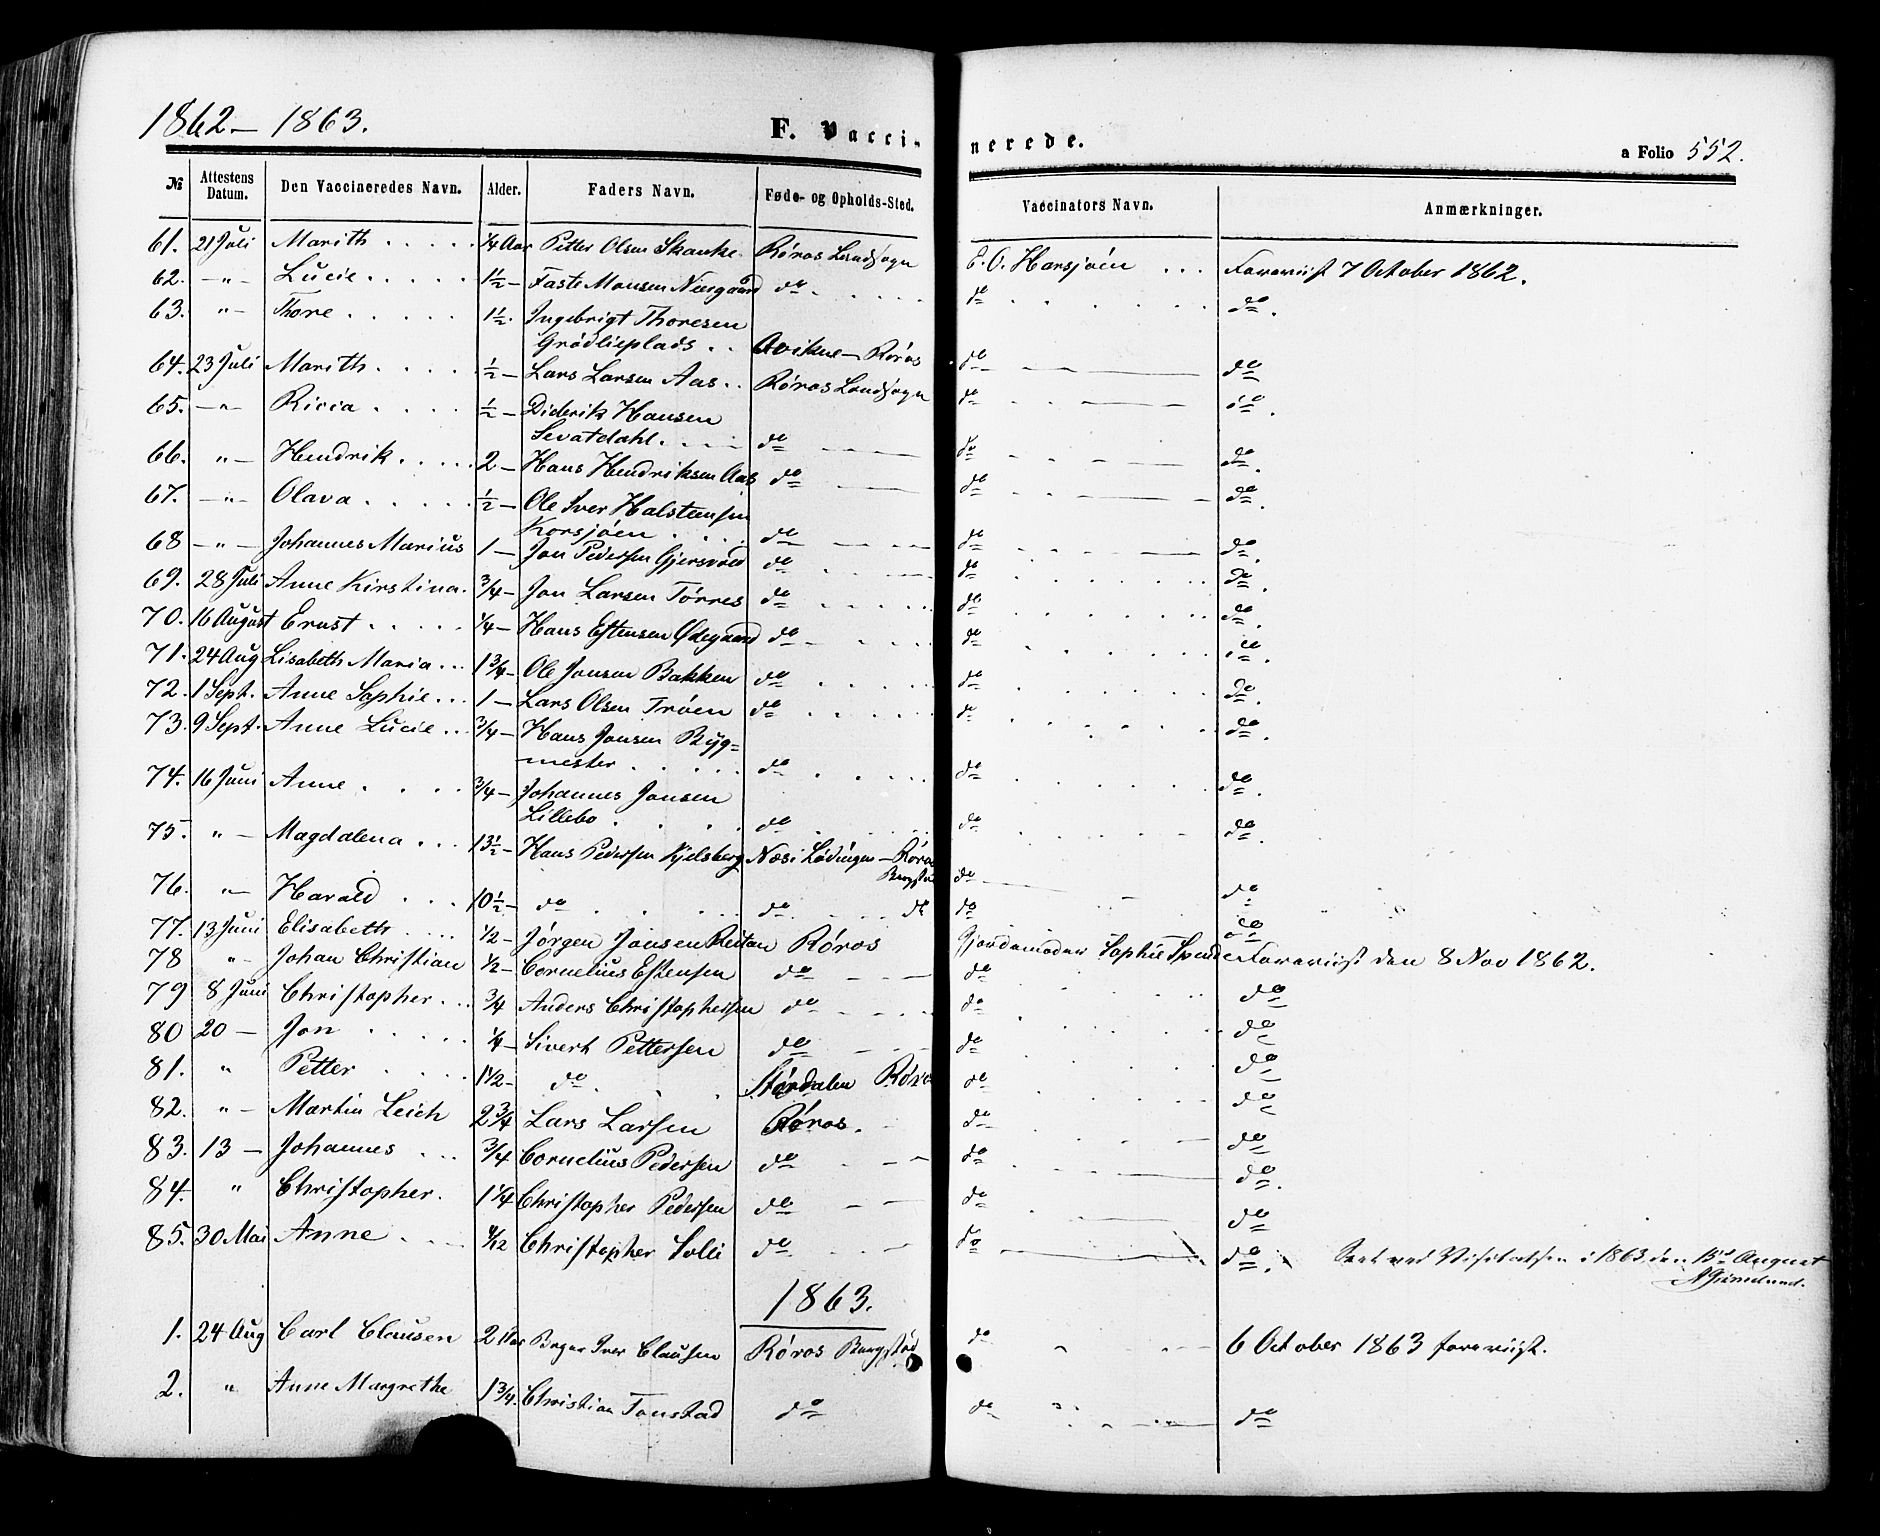 1862 – 1863.
F. Vacci-
nerede.
a Folio 552.
№ Attestens Datum. Den Vaccineredes Navn. Alder. Faders Navn. Føde- og Opholds-Sted. Vaccinators Navn. Anmærkninger.
61. 21 Juli Marith . . . . . ¼ Aar Petter Olsen Skanke. Røros Landsogn E. O. Harsjøen . . . Foreviist 7 October 1862.
62. – " – Lucie . . . . . 1½ – Faste Monsen Neesgaard do . . . . . do . . . . . do.
63. " – Thore . . . . . 1½ – Ingebrigt Thoresen
Grødlieplads . . Qvikne – Røros do do.
64. 23 Juli Marith . . . . . ½ – Lars Larsen Aas . . Røros Landsogn do do
65. – " – Ricca . . . . . ½ – Diderik Hansen
Sevatdahl . . . . do do do.
66. " – Hendrik . . . . 2 – Hans Hendriksen Aas do do do.
67. – " – Olava . . . . . ½ – Ole Iver Halstensen
Korsjøen . . . . do do do.
68 – " – Johannes Marius 1 – Jon Pedersen Gjersvold do do do.
69. 28 Juli Anne Kirstina. ¾ – Jon Larsen Tørres do do do.
70. 16 August Ernst . . . . . ¼ – Hans Estensen Ødegaard do do do.
71. 24 Aug Lisabeth Maria . . . 1¾ – Ole Jonsen Bakken do do do.
72. 1 Sept. Anne Sophie . . . 1 – Lars Olsen Trøen do do do.
73. 9 Sept. Anne Lucie . . . ¾ – Hans Jonsen Byg=
mester . . . . . do do do.
74. 16 Juni Anne . . . . ¾ – Johannes Jonsen
Lillebo . . . . do do do.
75. " – Magdalena . . . 13½ – Hans Pedersen Kjelsberg Næs i Lødingen – Røros
Bergstad do do
76. " – Harald . . . 10½ – do do do do do
77. 13 Juni Elisabeth . . . . ½ – Jørgen Jonsen Reitan Røros Gjordemoder Sophie Foreviist den 8 Nov 1862.
78 " – Johan Christian ½ – Cornelius Estensen do do do
79 8 Juni Christopher . . . ¾ Anders Christophersen do do do
80 20 – Jon . . . . . ¼ – Sivert Pettersen do do do
81. " Petter . . . . 1½ – do Størdalen Røros do do
82. " – Martin Leich 2¾ Lars Larsen Røros. do do
83. 13 – Johannes . . . ¾ Cornelius Pedersen do do do.
84. " Christopher. 1¼ Christopher Pedersen do do do
85. 30 Mai Anne . . . 4/12 Christopher Solli do do do. Seet ved Visitatsen i 1863 den 13de August
1863.
1. 24 Aug Carl Clausen 2 Aar Iver Clausen Røros Bergstad do 6 October 1863 foreviist.
2. " Anne Margrethe 1¾. Christian Tonstad do do do